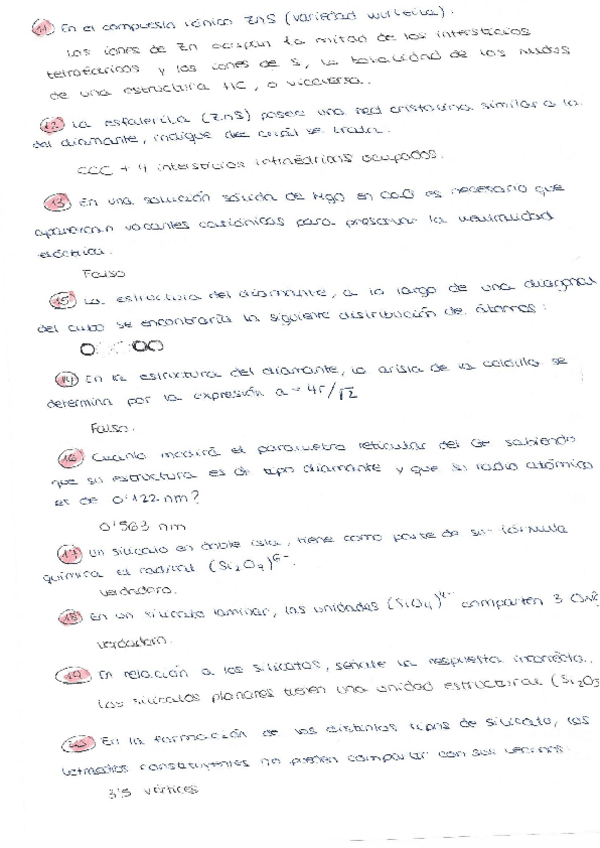 11) En el compuesto iónico ZnS (variedad wurtzita).
Los iones de Zn ocupan la mitad de los intersticios
tetraédricos y los iones de S, la totalidad de los nudos
de una estructura HC, o viceversa.
12) La esfalerita (ZnS) posee una red cristalina similar a la
del diamante, indique de se trata.
CCC + 4 intersticios ocupados.
13) En una solución sólida de MgO en es necesario que
aparezcan vacantes catiónicas para preservar la neutralidad
eléctrica.
Falso
15) La estructura del diamante, a lo largo de una diagonal
del cubo se encontraría la siguiente distribución de átomos:
14) En la estructura del diamante, la arista de la celdilla se
determina por la expresión a = 4r/√2
Falso.
16) Cuanto medirá el parámetro reticular del Ge sabiendo
que su estructura es de tipo diamante y que su radio atómico
es de 0'122 nm?
0'563 nm
17) Un silicato en doble isla, tiene como parte de su fórmula
química el radical (Si2O7)6-.
Verdadero.
18) En un silicato laminar, las unidades (SiO4)4- comparten 3
verdadero.
19) En relación a los silicatos, señale la respuesta incorrecta.
Los silicatos planares tienen una unidad estructural (Si2O5
20) En la formación de los distintos tipos de silicato, los
constituyentes no pueden compartir con sus vecinos.
3'5 vértices